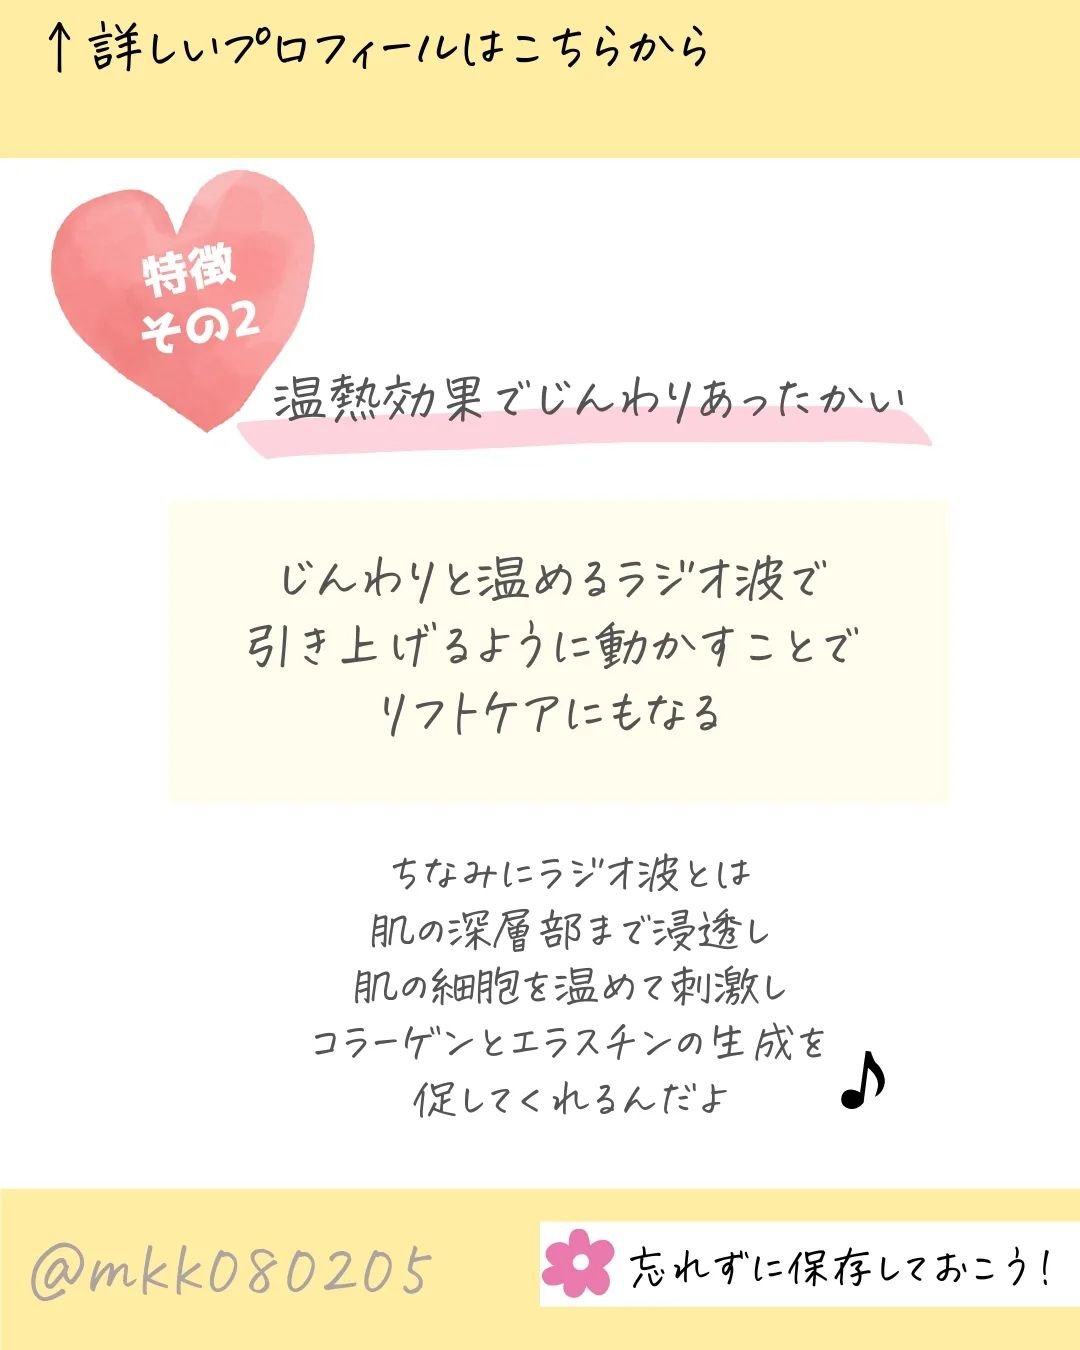 ↑詳しいプロフィールはこちらから
特徴
その2
温熱効果でじんわりあったかい
じんわりと温めるラジオ波で
引き上げるように動かすことで
リフトケアにもなる
ちなみにラジオ波とは
肌の深層部まで浸透し
肌の細胞を温めて刺激し
コラーゲンとエラスチンの生成を
促してくれるんだよ
@mkk080205
忘れずに保存しておこう!